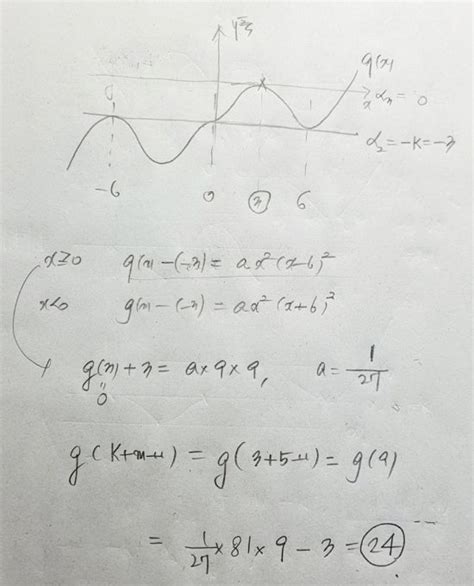 g(x)
α₃ = 0
x
α₂ = -k = -3
-6 0 ③ 6
x≥0 g(x) - (-3) = ax²(x-6)²
x<0 g(x) - (-3) = ax²(x+6)²
g(3) + 3 = a×9×9, a = 1/27
0
g(k+m+1) = g(3+5+1) = g(9)
= 1/27 × 81 × 9 - 3 = 24